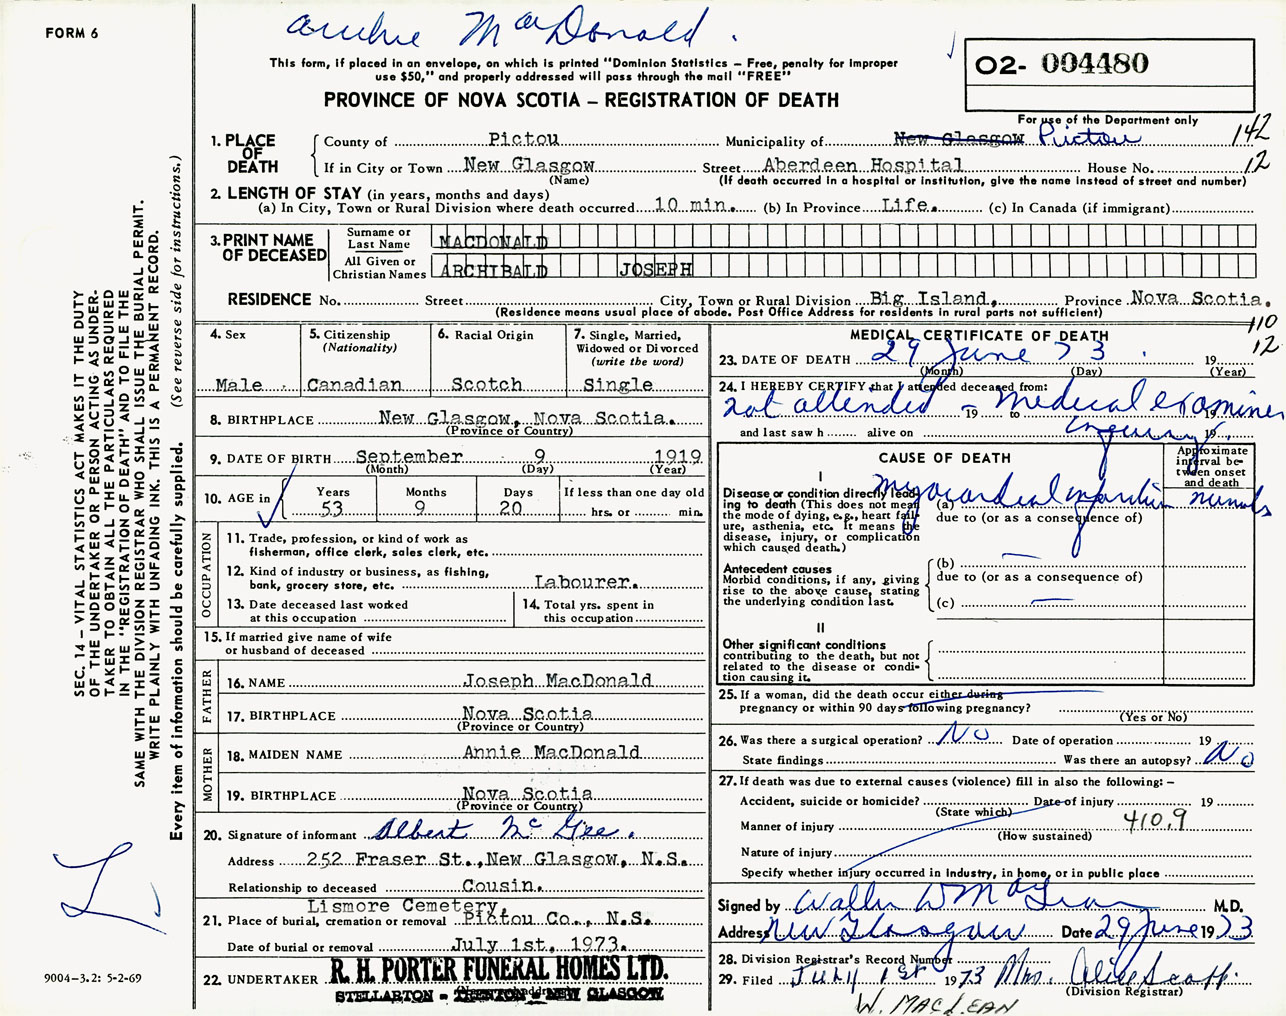 FORM 6
Archie MacDonald.
This form, if placed in an envelope, on which is printed "Dominion Statistics – Free, penalty for improper
use $50," and properly addressed will pass through the mail "FREE"
PROVINCE OF NOVA SCOTIA – REGISTRATION OF DEATH
O2- 004480
For use of the Department only
1. PLACE OF DEATH
County of Pictou Municipality of New Glasgow Pictou 142
If in City or Town New Glasgow Street Aberdeen Hospital House No. 12
(Name) (If death occurred in a hospital or institution, give the name instead of street and number)
2. LENGTH OF STAY (in years, months and days)
(a) In City, Town or Rural Division where death occurred 10 min. (b) In Province Life. (c) In Canada (if immigrant)
3. PRINT NAME OF DECEASED
Surname or Last Name MACDONALD
All Given or Christian Names ARCHIBALD JOSEPH
RESIDENCE No. Street City, Town or Rural Division Big Island, Province Nova Scotia.
(Residence means usual place of abode. Post Office Address for residents in rural parts not sufficient)
110
12
4. Sex
Male
5. Citizenship
(Nationality)
Canadian
6. Racial Origin
Scotch
7. Single, Married,
Widowed or Divorced
(write the word)
Single
8. BIRTHPLACE New Glasgow, Nova Scotia.
(Province or Country)
9. DATE OF BIRTH September 9 1919
(Month) (Day) (Year)
10. AGE in
Years Months Days If less than one day old
53 9 20 hrs. or min.
OCCUPATION
11. Trade, profession, or kind of work as
fisherman, office clerk, sales clerk, etc.
12. Kind of industry or business, as fishing,
bank, grocery store, etc. Labourer.
13. Date deceased last worked
at this occupation
14. Total yrs. spent in
this occupation
15. If married give name of wife
or husband of deceased
FATHER
16. NAME Joseph MacDonald
17. BIRTHPLACE Nova Scotia
(Province or Country)
MOTHER
18. MAIDEN NAME Annie MacDonald
19. BIRTHPLACE Nova Scotia
(Province or Country)
20. Signature of informant Albert McGee.
Address 252 Fraser St., New Glasgow, N.S.
Relationship to deceased Cousin.
Lismore Cemetery,
21. Place of burial, cremation or removal Pictou Co., N.S.
Date of burial or removal July 1st, 1973.
22. UNDERTAKER R. H. PORTER FUNERAL HOMES LTD.
STELLARTON – TRENTON – NEW GLASGOW
MEDICAL CERTIFICATE OF DEATH
23. DATE OF DEATH 29 June 73. 19
(Month) (Day) (Year)
24. I HEREBY CERTIFY that I attended deceased from:
not attended 19 to medical examiner 19
and last saw h alive on inquiry. 19
CAUSE OF DEATH
Approximate
interval be-
tween onset
and death
I
Disease or condition directly lead-
ing to death (This does not mean
the mode of dying, e.g., heart fail-
ure, asthenia, etc. It means the
disease, injury, or complication
which caused death.)
(a) myocardial infarction minutes
due to (or as a consequence of)
Antecedent causes
Morbid conditions, if any, giving
rise to the above cause, stating
the underlying condition last.
(b)
due to (or as a consequence of)
(c)
II
Other significant conditions
contributing to the death, but not
related to the disease or condi-
tion causing it.
25. If a woman, did the death occur either during
pregnancy or within 90 days following pregnancy?
(Yes or No)
26. Was there a surgical operation? No Date of operation 19
State findings Was there an autopsy? No
27. If death was due to external causes (violence) fill in also the following: –
Accident, suicide or homicide? Date of injury 19
(State which)
Manner of injury 410.9
(How sustained)
Nature of injury
Specify whether injury occurred in industry, in home, or in public place
Signed by Walter W MacLean M.D.
Address New Glasgow Date 29 June 1973
28. Division Registrar's Record Number
29. Filed July 1st 1973 Mrs. Alice Scott.
(Division Registrar)
W. MACLEAN
SEC. 14 – VITAL STATISTICS ACT MAKES IT THE DUTY
OF THE UNDERTAKER OR PERSON ACTING AS UNDER-
TAKER TO OBTAIN ALL THE PARTICULARS REQUIRED
IN THE "REGISTRATION OF DEATH" AND TO FILE THE
SAME WITH THE DIVISION REGISTRAR WHO SHALL ISSUE THE BURIAL PERMIT.
WRITE PLAINLY WITH UNFADING INK. THIS IS A PERMANENT RECORD.
Every item of information should be carefully supplied. (See reverse side for instructions.)
9004–3.2: 5-2-69